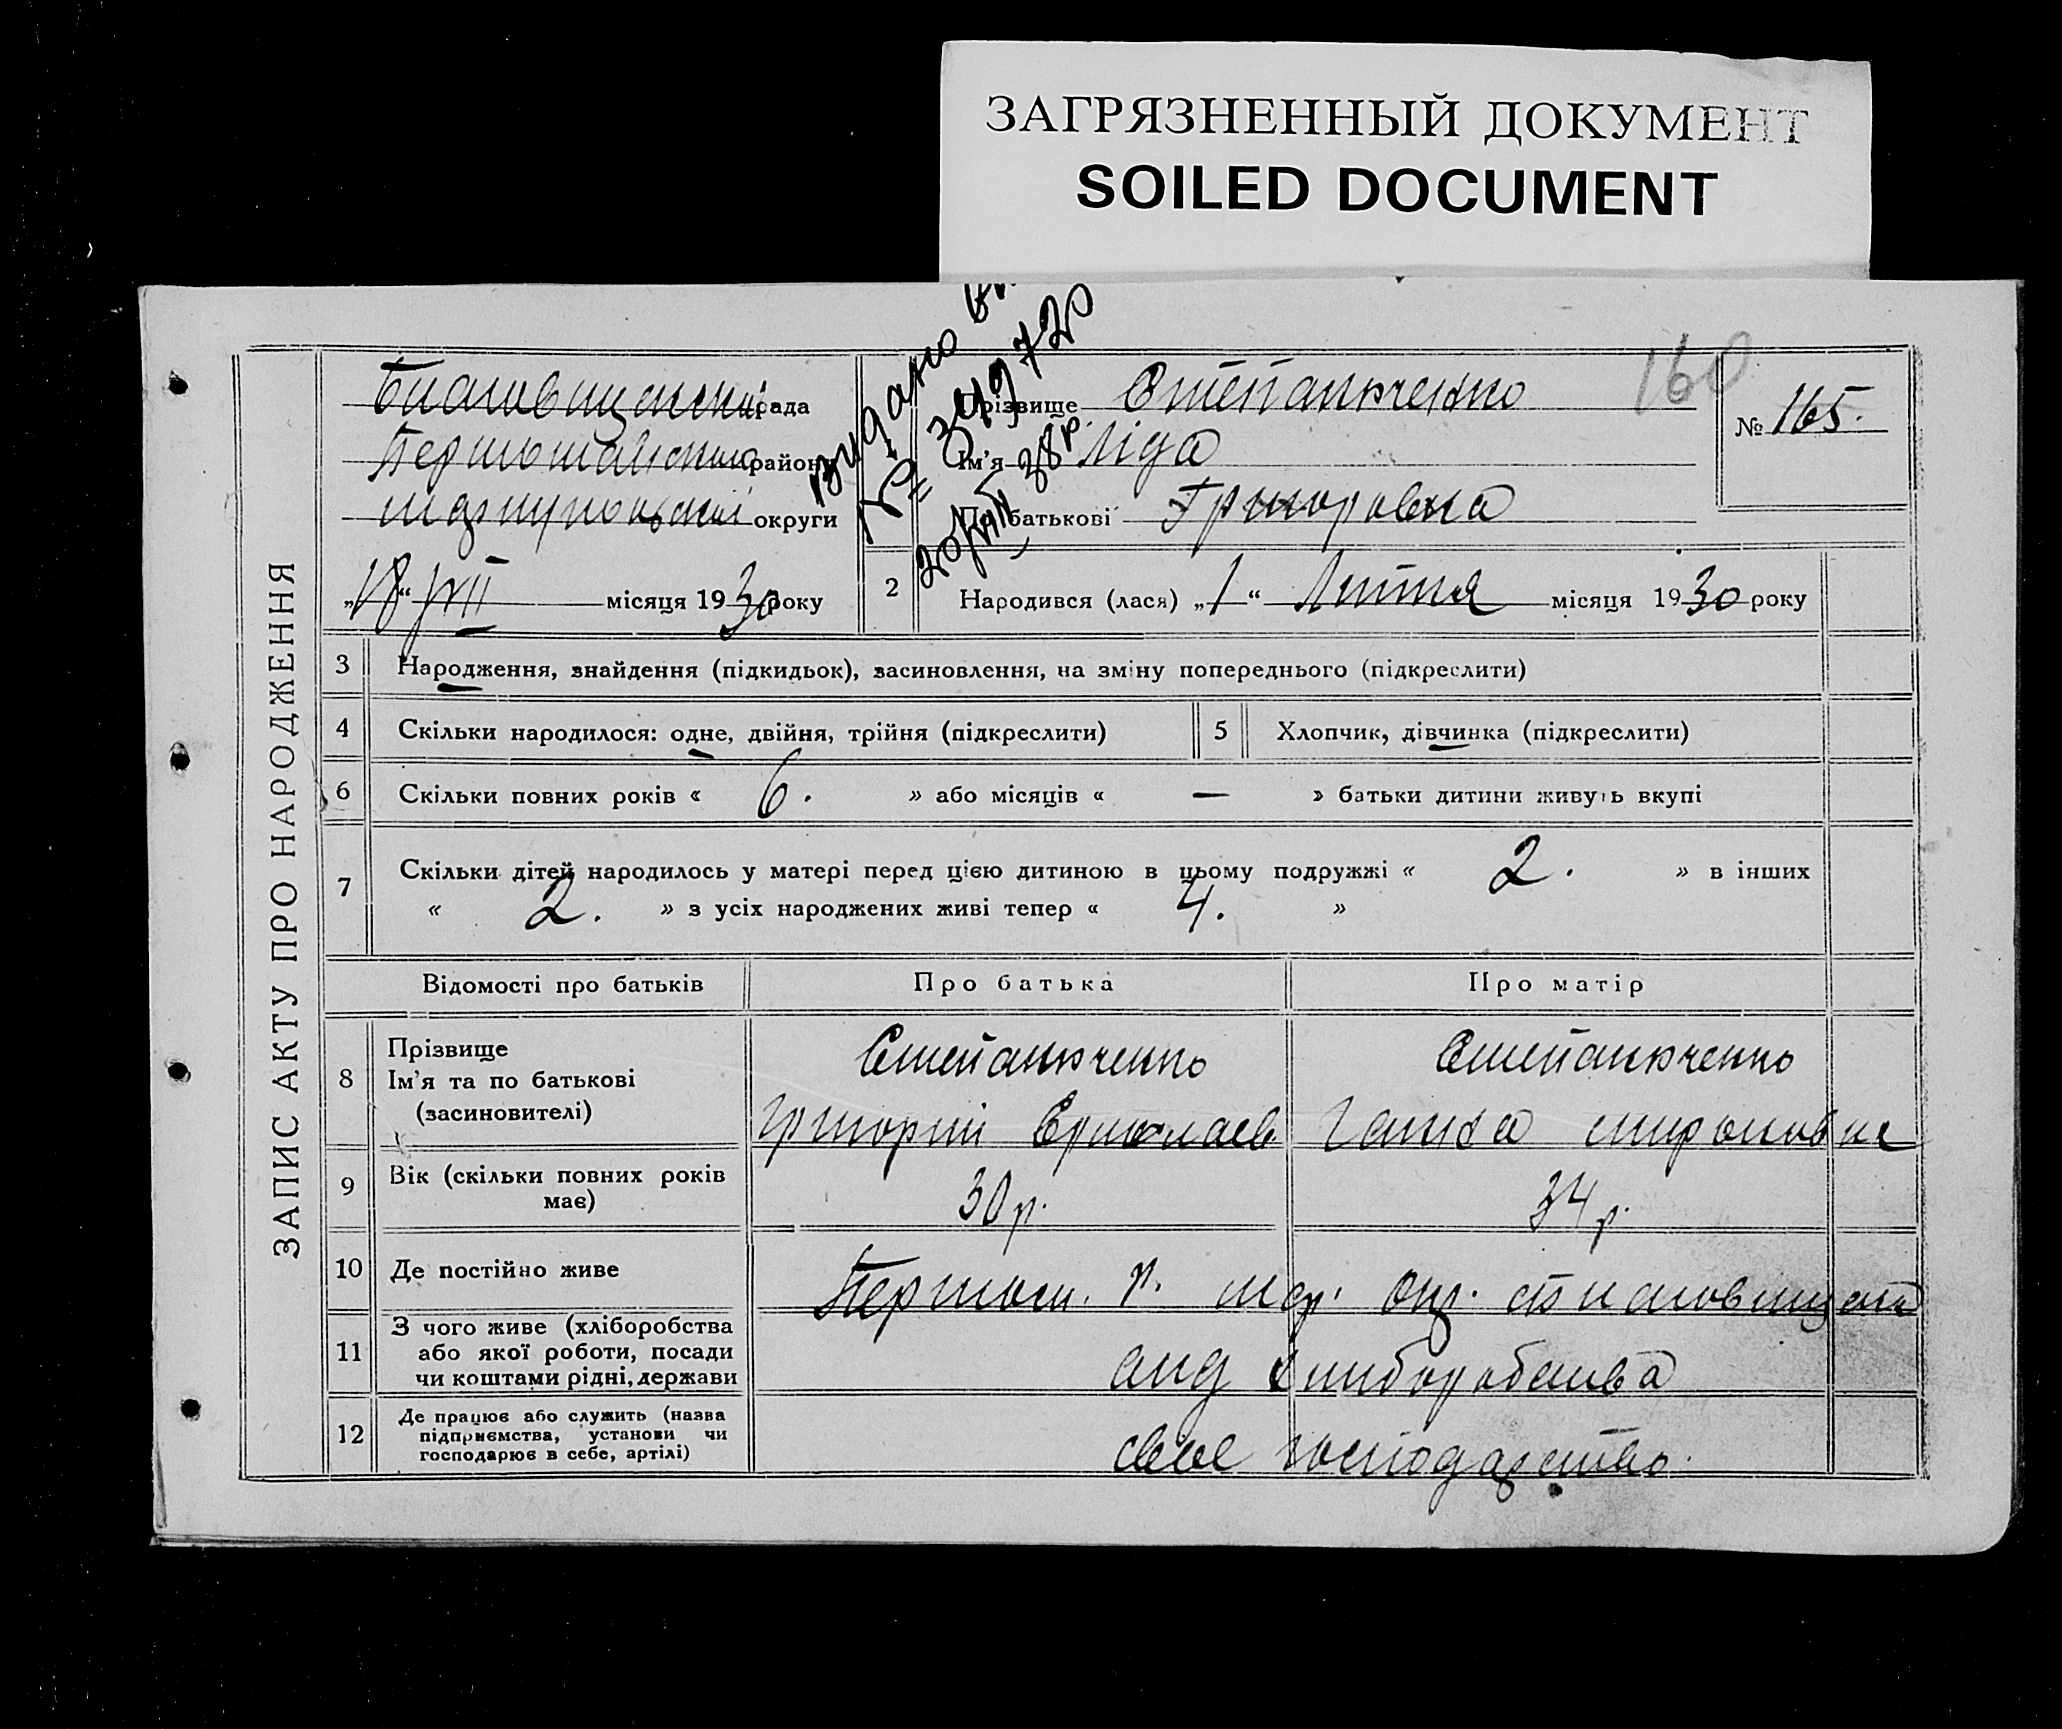 ЗАГРЯЗНЕННЫЙ ДОКУМЕНТ
SOILED DOCUMENT
160
ЗАПИС АКТУ ПРО НАРОДЖЕННЯ
рада
району
округи
„18“ VIII місяця 1930 року
видано
№ 349720
38р.
Прізвище Степанюченко
Ім’я Ліда
По батькові Григоровна
№ 165.
2 Народився (лася) „1“ Липня місяця 1930 року
3 Народження, знайдення (підкидьок), засиновлення, на зміну попереднього (підкреслити)
4 Скільки народилося: одне, двійня, трійня (підкреслити)
5 Хлопчик, дівчинка (підкреслити)
6 Скільки повних років « 6. » або місяців « — » батьки дитини живуть вкупі
7 Скільки дітей народилось у матері перед цією дитиною в цьому подружжі « 2. » в інших
« 2. » з усіх народжених живі тепер « 4. »
Відомості про батьків Про батька Про матір
8 Прізвище
Ім’я та по батькові
(засиновителі)
Степанюченко
Григорий Ермолаев
Степанюченко
Ганна Мироновна
9 Вік (скільки повних років
має)
30 р. 34 р.
10 Де постійно живе
Першом. р. Мар. Окр.
11 З чого живе (хліборобства
або якої роботи, посади
чи коштами рідні, держави
від хліборобства
12 Де працює або служить (назва
підприємства, установи чи
господарює в себе, артілі)
своє господарство.